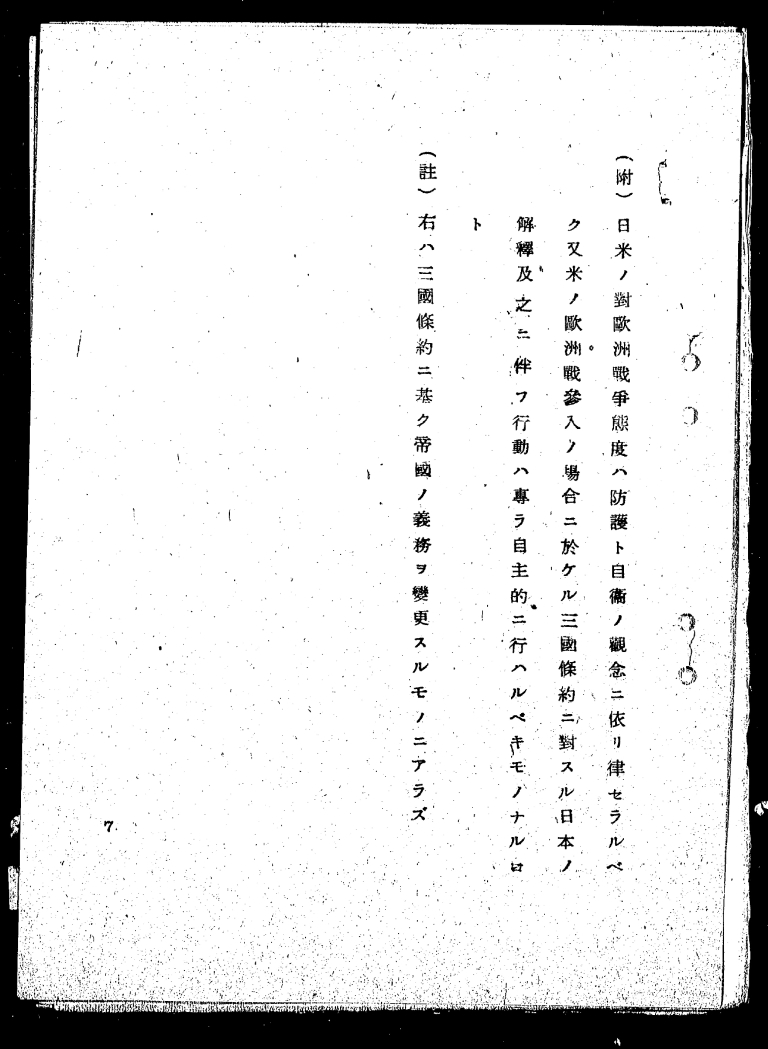 (附)日米ノ對歐洲戰爭態度ハ防護ト自衞ノ觀念ニ依リ律セラルベ
ク又米ノ歐洲戰參入ノ場合ニ於ケル三國條約ニ對スル日本ノ
解釋及之ニ伴フ行動ハ專ラ自主的ニ行ハルベキモノナルコ
ト
(註)右ハ三國條約ニ基ク帝國ノ義務ヲ變更スルモノニアラズ
7